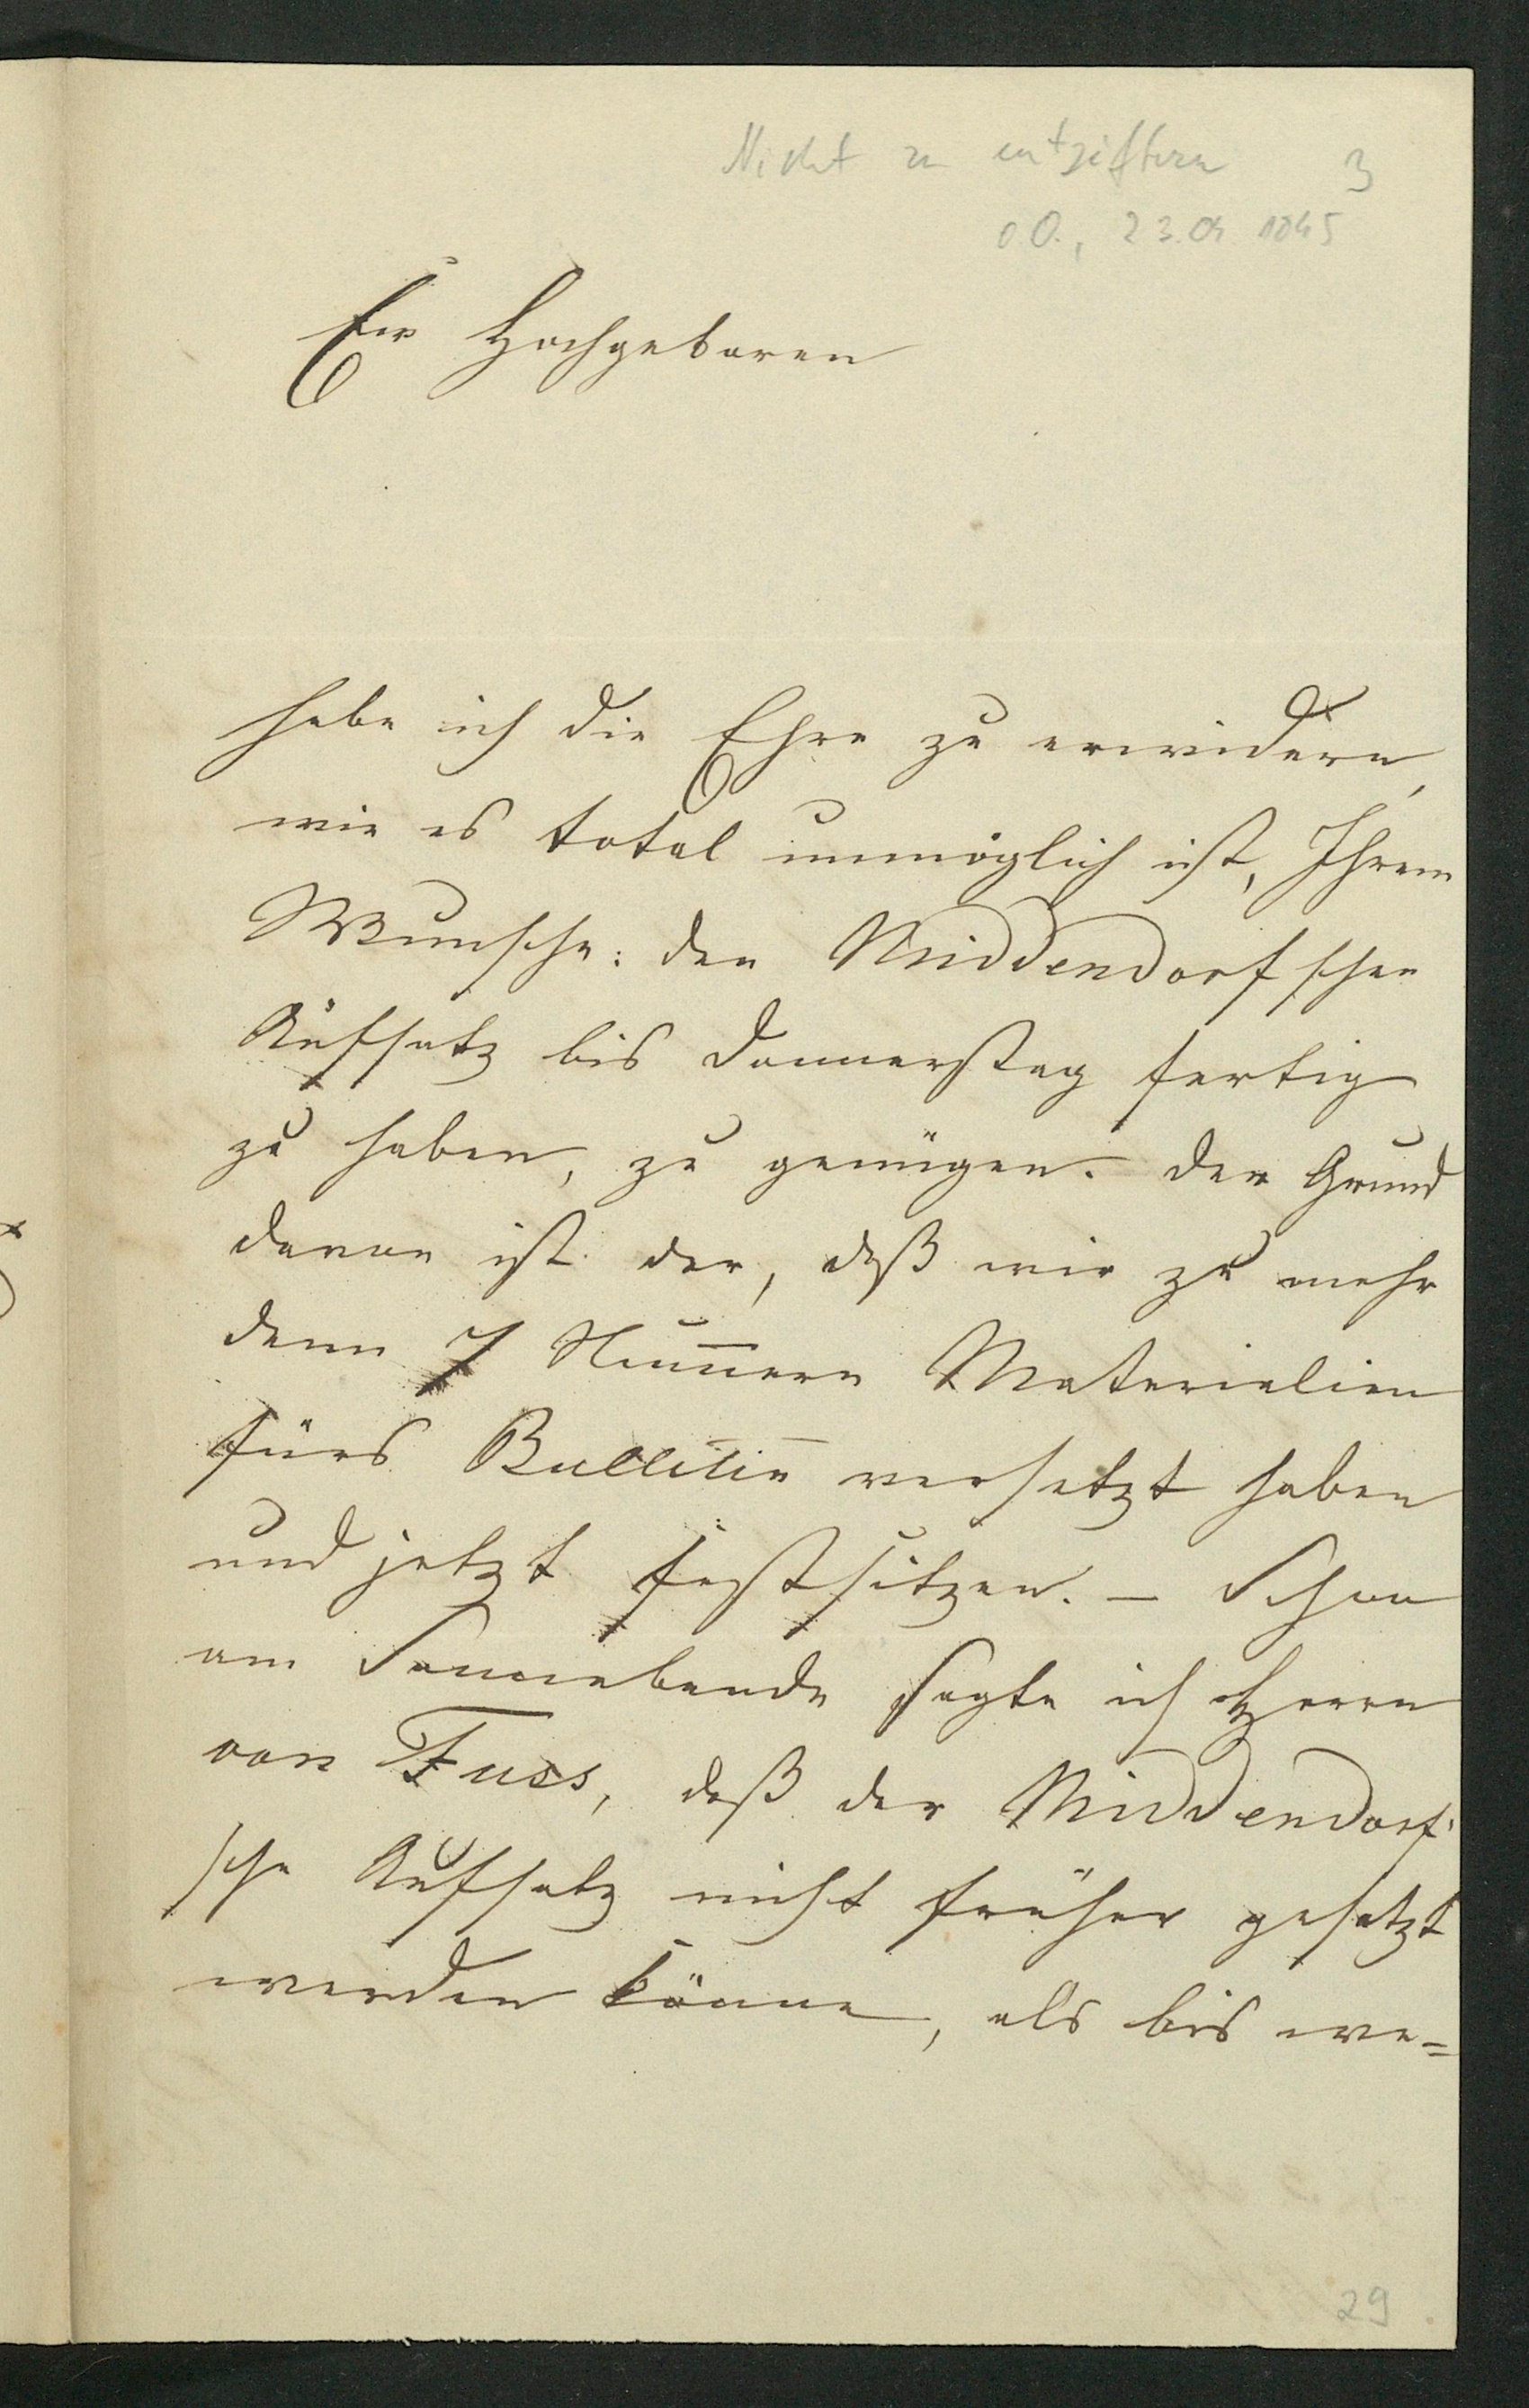 Nicht zu entziffern 3
o.O., 23.04.1845
Ew Hochgeboren
habe ich die Ehre zu erwidern,
wie es total unmöglich ist, Ihrem
Wunsche: den Middendorfschen
Aufsatz bis Donnerstag fertig
zu haben, zu genügen. Der Grund
davon ist der, daß wir zu mehr
denn 7 Num̅ern Materialien
fürs Bulletin versetzt haben
und jetzt festsitzen. – Schon
am Sonnabende sagte ich Herrn
von Fuss, daß der Middendorf-
sche Aufsatz nicht früher gesetzt
werden könne, als bis we=
29